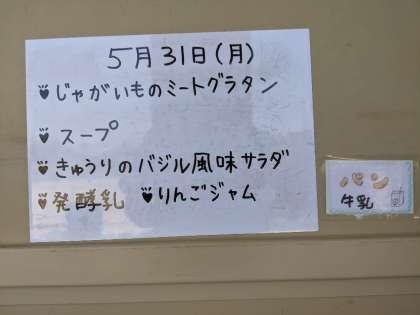 5月31日(月)
じゃがいものミートグラタン
スープ
きゅうりのバジル風味サラダ
発酵乳 りんごジャム
パン
牛乳